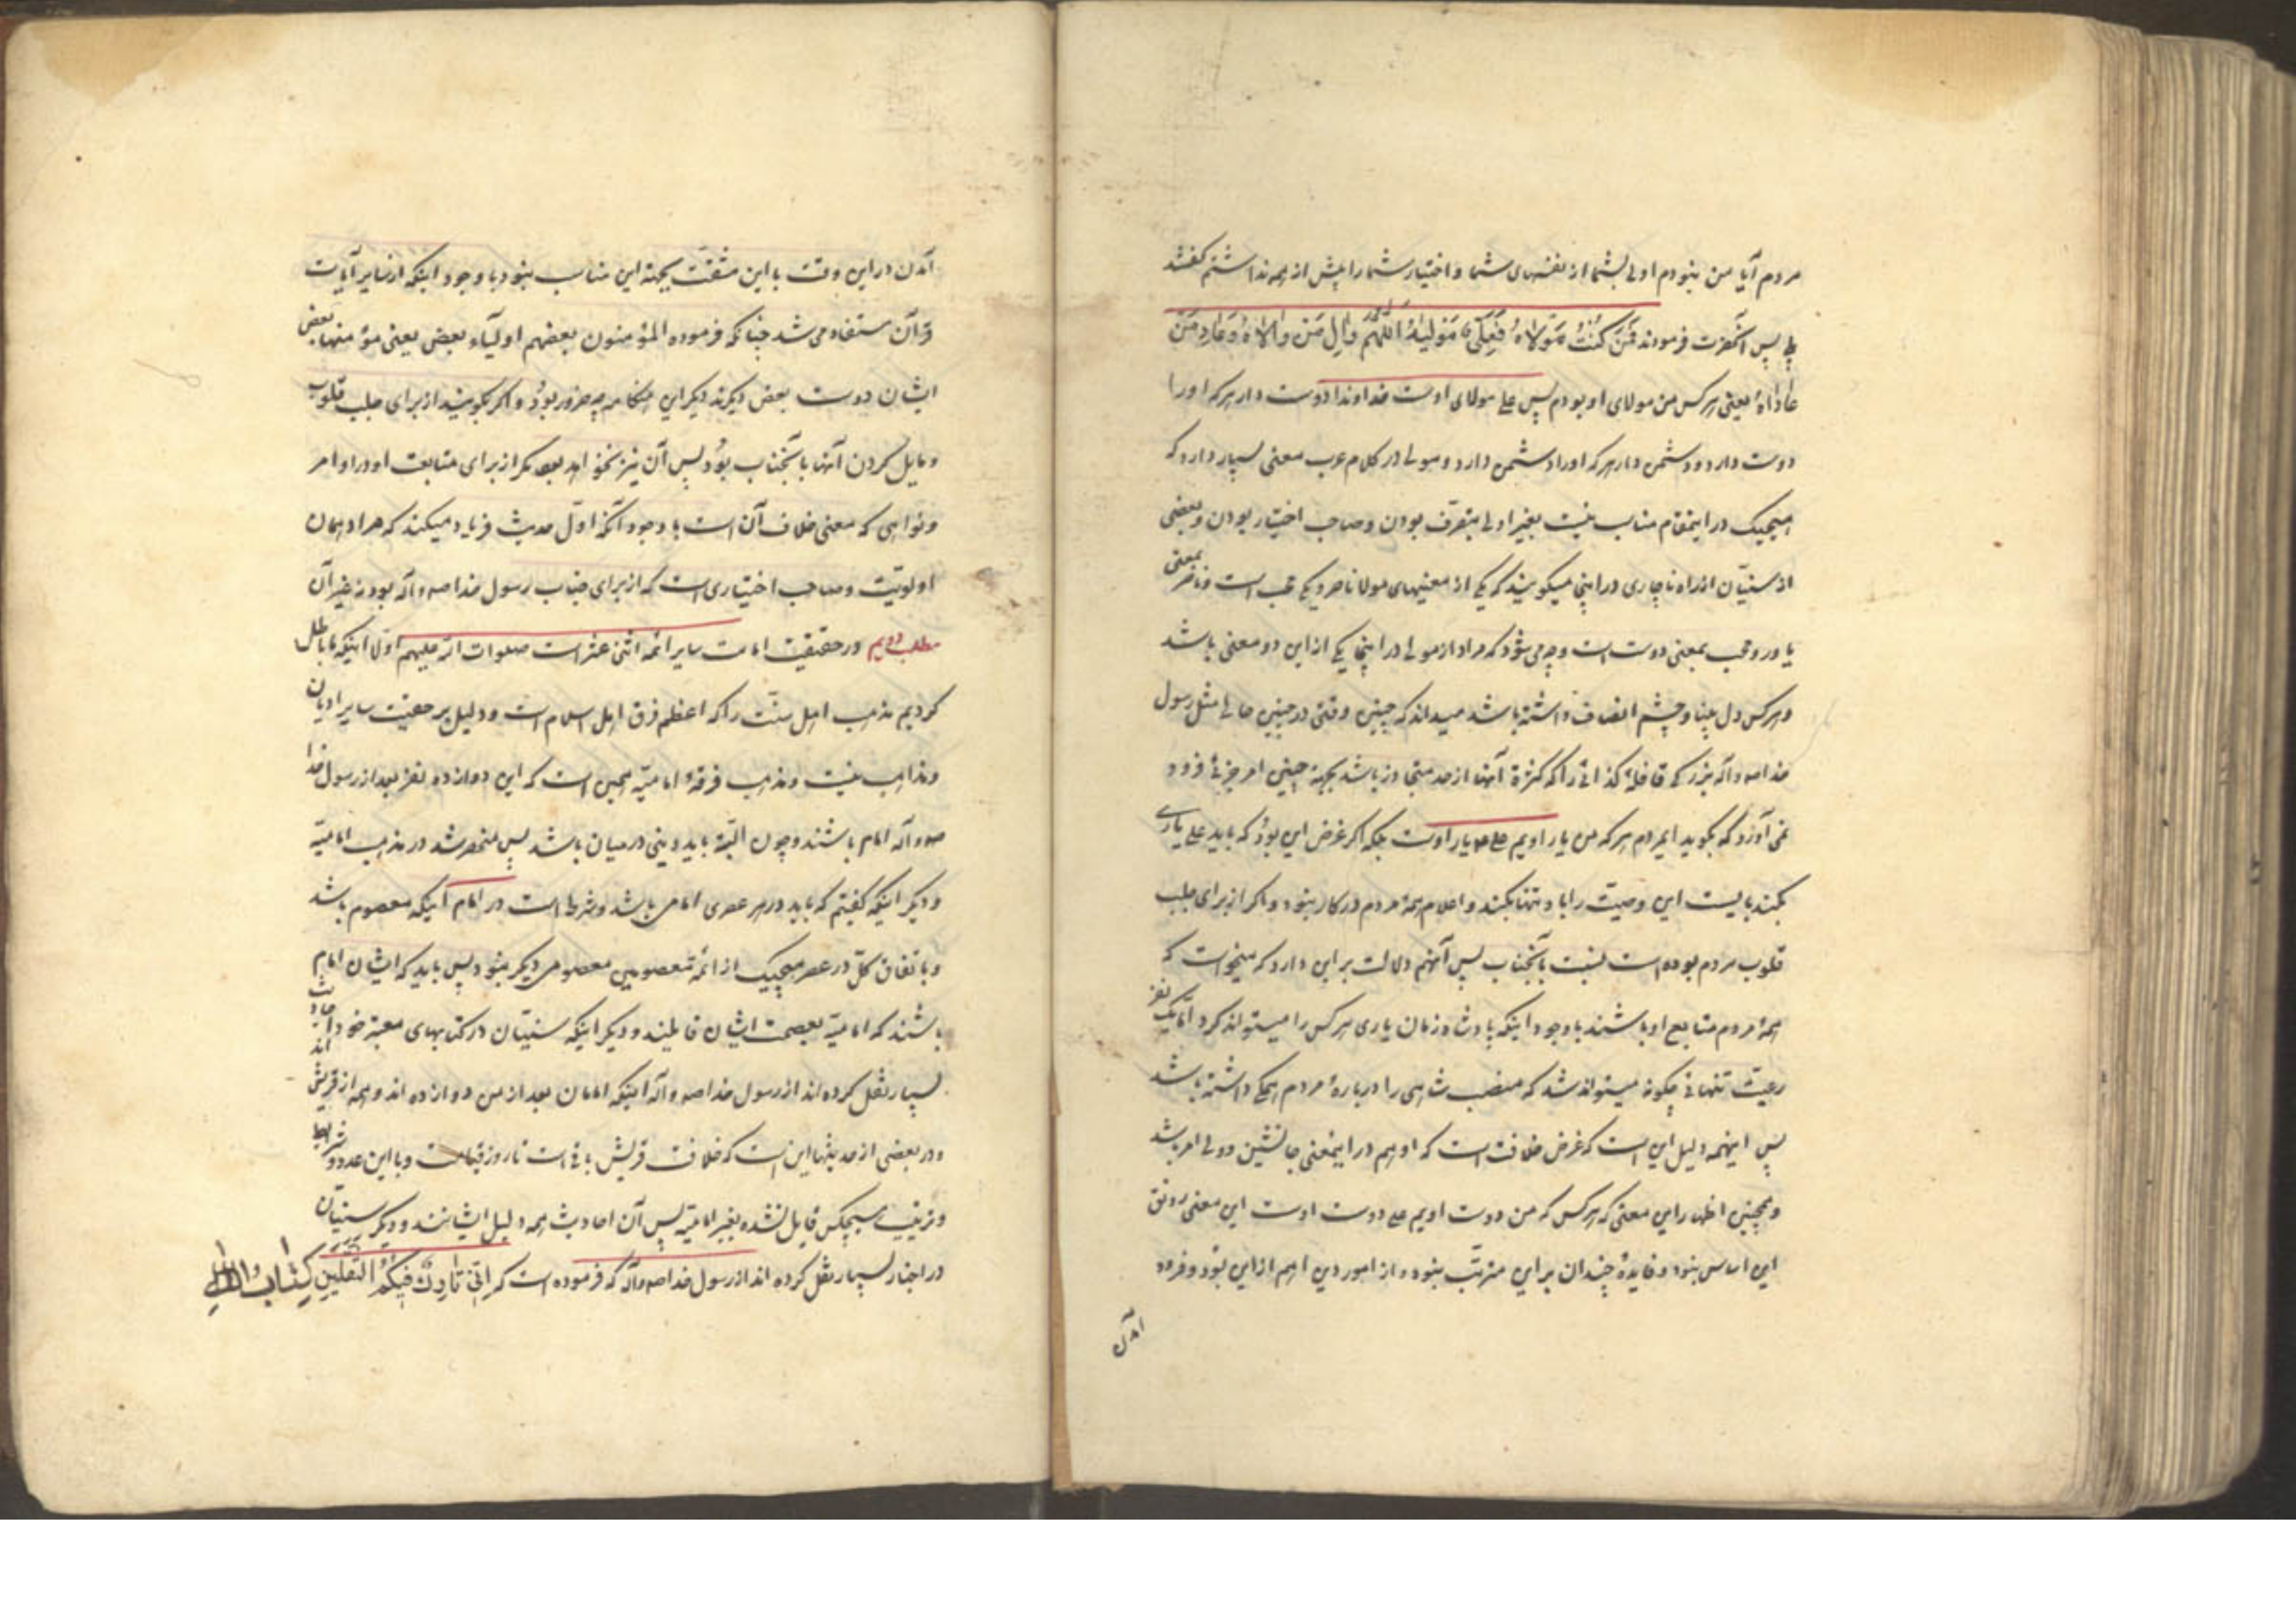 مردم آیا من نبودم اولی بشما از نفسهای شما و اختیار شما را پیش از همه نداشتم گفتند
بلی پس آنحضرت فرمودند فَمَنْ کُنْتُ مَوْلاهُ فَعَلیٌّ مَوْلَیهُ اَللّٰهُمَّ والِ مَنْ والاهُ وَعادِ مَنْ
عاداهُ یعنی هر کس من مولای او بودم پس علی مولای اوست خداوندا دوست دار هر که او را
دوست دارد و دشمن دار هر که او را دشمن دارد و مولی در کلام عرب معنی بسیار دارد که
هیچیک در اینمقام مناسب نیست بغیر اولی بتصرف بودن و صاحب اختیار بودن و بعضی
از سنیّان از راه ناچاری در اینجا میگویند که یکی از معنیهای مولا ناصر و یکی محب است و ناصر بمعنی
یاور و محب بمعنی دوست است و چه می شود که مراد از مولی در اینجا یکی از این دو معنی باشد
و هر کس دل بینا و چشم انصاف داشته باشد میداند که چنین وقتی در چنین حالی مثل رسول
خدا صه و آله بزرگی قافلهٔ کذائی را که کثرة آنها از حد متجاوز باشد بجهة چنین امر جزئی فرود
نمی آورد که بگوید ایمردم هر که من یار اویم علی هم یار اوست بلکه اگر غرض این بود که باید علی یاری
بکند بایست این وصیّت را باو تنها بکند و اعلام همهٔ مردم در کار نبود و اگر از برای جلب
قلوب مردم بوده است نسبت بآنجناب پس آنهم دلالت بر این دارد که میخواست که
همهٔ مردم متابع او باشند با وجود اینکه پادشاه زمان یاری هر کس را میتواند کرد امّا یک نفر
رعیّت تنهائی چگونه میتواند شد که منصب شاهی را دربارهٔ مردم همگی داشته باشد
پس اینهمه دلیل این است که غرض خلافت است که او هم در اینمعنی جانشین و ولی امر باشد
و همچنین اظهار این معنی که هر کس که من دوست اویم علی دوست اوست این معنی رونق
این اساس نبود و فایدهٔ چندان بر این مترتّب نبود و از امور دین اهم از این بود و فرود
آمدن
آمدن در این وقت با این مشقّت بجهة این مناسب نبود با وجود اینکه از سایر آیات
قرآن مستفاد می شد چنانکه فرموده المؤمنون بعضهم اولیاء بعض یعنی مؤمنها بعض
ایشان دوست بعض دیگرند دیگر این هنگامه چه ضرور بود و اگر بگویند از برای جلب قلوب
و مایل کردن آنها بآنجناب بود پس آن نیز نخواهد بود مگر از برای متابعت او در اوامر
و نواهی که معنی خلافت آن است با وجود آنکه اوّل حدیث فریاد میکند که مراد همان
اولویّت و صاحب اختیاری است که از برای جناب رسول خدا صه و آله بود نه غیر آن
مطلب دویم در حقیقت امامت سایر ائمه اثنی عشر است صلوات الله علیهم اولا اینکه ما باطل
کردیم مذهب اهل سنّت را که اعظم فرق اهل اسلام است و دلیل بر حقیّت سایر ادیان
و مذاهب نیست و مذهب فرقهٔ امامیّه همین است که این دوازده نفر بعد از رسول خدا
صه و آله امام باشند و چون البتّه باید دینی در میان باشد پس منحصر شد در مذهب امامیّه
و دیگر اینکه گفتیم که باید در هر عصری امامی باشد و شرط است در امام اینکه معصوم باشد
و باتفاق کلّ در عصر هیچیک از ائمّه معصومین معصومی دیگر نبود پس باید که ایشان امام
باشند که امامیّه بعصمت ایشان قایلند و دیگر اینکه سنیّان در کتابهای معتبر خود احادیث
بسیار نقل کرده اند از رسول خدا صه و آله اینکه امامان بعد از من دوازده اند و همه از قریش اند
و در بعضی از حدیثها این است که خلافت قریش باقی است تا روز قیامت و باین عدد و شرایط
و ترتیب هیچکس قایل نشده بغیر امامیّه پس آن احادیث همه دلیل ایشانند و دیگر سنیّان
در اخبار بسیار نقل کرده اند از رسول خدا صه و آله که فرموده است که اِنّی تارِکٌ فیکُمُ الثَّقَلَینِ کِتابَ اللهِ